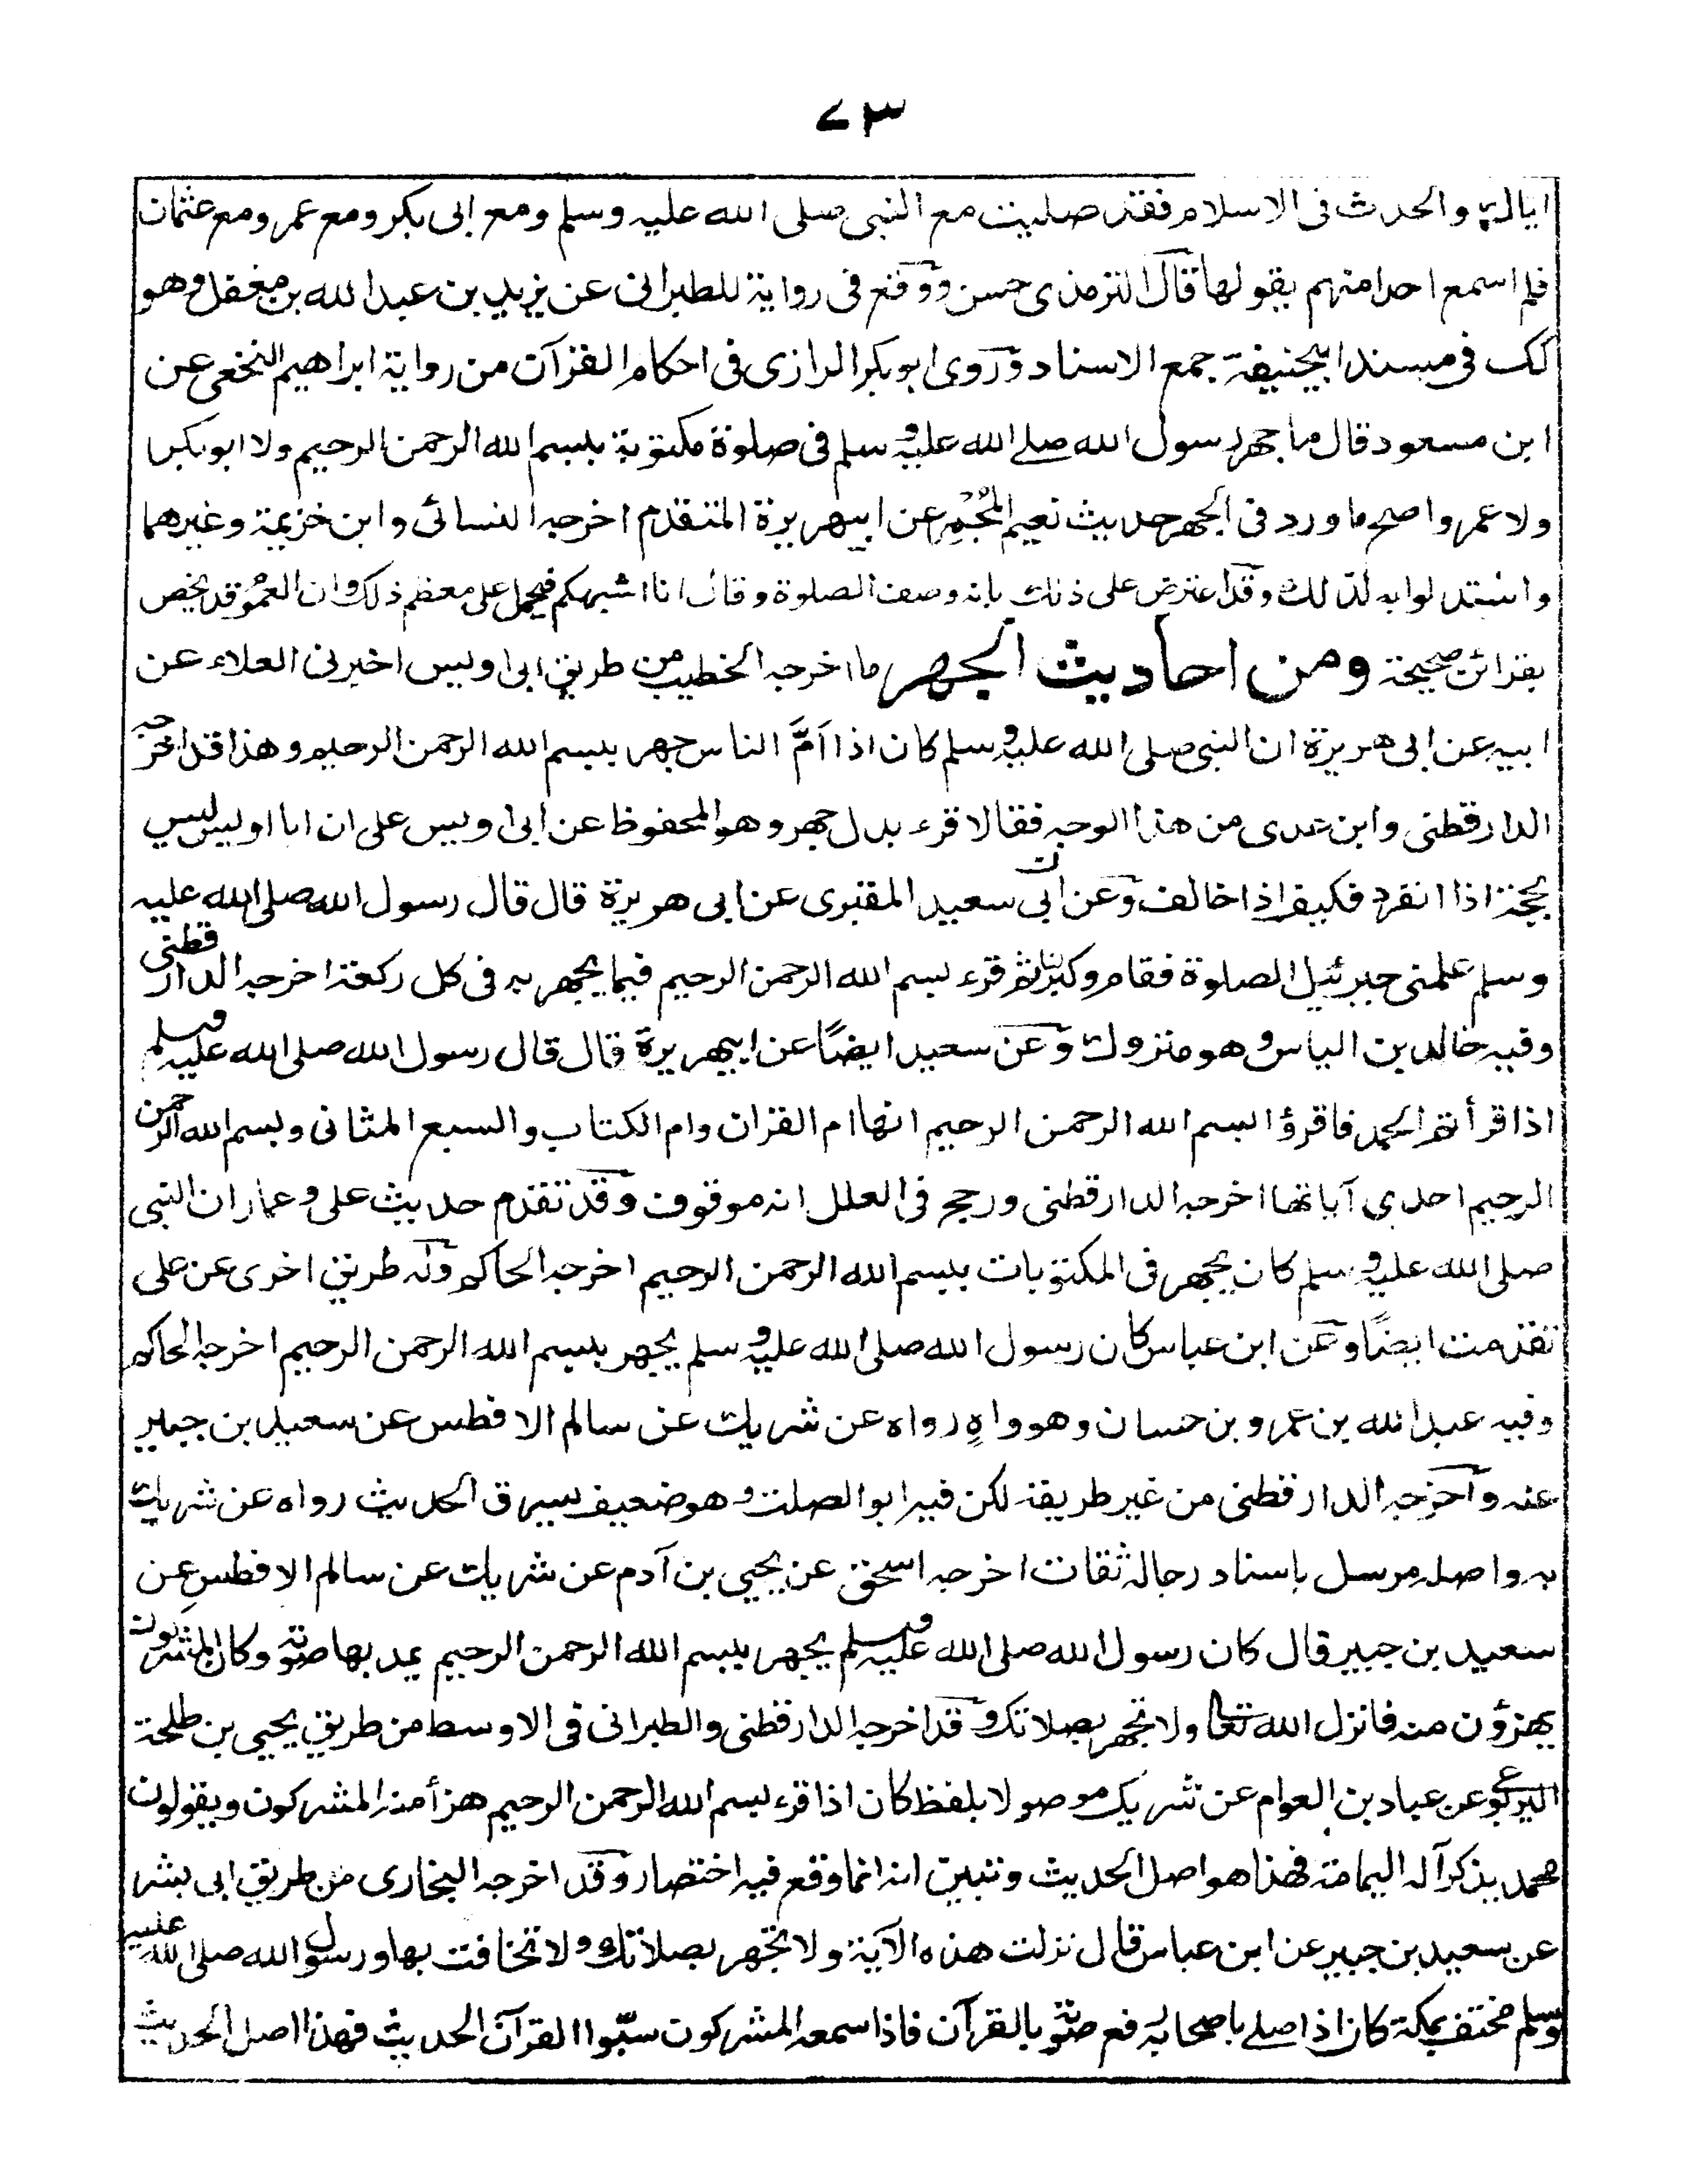 ٧٣
اياك والحدث فى الاسلام فقد صليت مع النبى صلى الله عليه وسلم ومع ابى بكر ومع عمر ومع عثمان
فلم اسمع احدا منهم يقولها قال الترمذى حسن ووقع فى رواية للطبرانى عن يزيد بن عبد الله بن مغفل وهو
كك فى مسند ابيحنيفة جمع الاسناد وروى ابو بكر الرازى فى احكام القرآن من رواية ابراهيم النخعى عن
ابن مسعود قال ما جهر رسول الله صلے الله عليه وسلم فى صلوة مكتوبة ببسم الله الرحمن الرحيم ولا ابو بكر
ولا عمر واصح ما ورد فى الجهر حديث نعيم المُجْمِر عن ابيهريرة المتقدم اخرجه النسائى وابن خزيمة وغيرهما
واستدلوا به لذلك وقد اعترض على ذلك بانه وصف الصلوة وقال انا اشبهكم فيحمل على معظم ذلك وان العموم قد يخص
بقرائن صحيحة ومن احاديث الجهر ما اخرجه الخطيب من طريق ابى اويس اخبرنى العلاء عن
ابيه عن ابى هريرة ان النبى صلى الله عليه وسلم كان اذا اَمَّ الناس جهر ببسم الله الرحمن الرحيم وهذا قد اخرجه
الدارقطنى وابن عدى من هذا الوجه فقالا قرء بدل جهر وهو المحفوظ عن ابى اويس على ان ابا اويس ليس
بحجة اذا انفرد فكيف اذا خالف وعن ابى سعيد المقبرى عن ابى هريرة قال قال رسول الله صلى الله عليه
وسلم علمنى جبرئيل الصلوة فقام وكبر لنا ثم قرء بسم الله الرحمن الرحيم فيما يجهر به فى كل ركعة اخرجه الدارقطنى
وفيه خالد بن الياس وهو متروك وعن سعيد ايضًا عن ابيهريرة قال قال رسول الله صلى الله عليه وسلم
اذا قرأتم الحمد فاقرؤا بسم الله الرحمن الرحيم انها ام القران وام الكتاب والسبع المثانى وبسم الله الرحمن
الرحيم احدى آياتها اخرجه الدارقطنى ورجح فى العلل انه موقوف وقد تقدم حديث على وعمار ان النبى
صلى الله عليه وسلم كان يجهر فى المكتوبات ببسم الله الرحمن الرحيم اخرجه الحاكم وله طريق اخرى عن على
تقدمت ايضًا وعن ابن عباس كان رسول الله صلى الله عليه وسلم يجهر ببسم الله الرحمن الرحيم اخرجه الحاكم
وفيه عبد الله بن عمرو بن حسان وهو واهٍ رواه عن شريك عن سالم الافطس عن سعيد بن جبير
عنه واخرجه الدارقطنى من غير طريقه لكن فيه ابو الصلت وهو ضعيف يسرق الحديث رواه عن شريك
به واصله مرسل باسناد رجاله ثقات اخرجه اسحق عن يحيى بن آدم عن شريك عن سالم الافطس عن
سعيد بن جبير قال كان رسول الله صلى الله عليه وسلم يجهر ببسم الله الرحمن الرحيم يمد بها صوته وكان المشركون
يهزؤن منه فانزل الله تعا ولا تجهر بصلاتك وقد اخرجه الدارقطنى والطبرانى فى الاوسط من طريق يحيى بن طلحة
اليربوعى عن عباد بن العوام عن شريك موصولا بلفظ كان اذا قرء بسم الله الرحمن الرحيم هزأ منه المشركون ويقولون
محمد يذكر آله اليمامة فهذا هو اصل الحديث وتبين انه انما وقع فيه اختصار وقد اخرجه البخارى من طريق ابى بشر
عن سعيد بن جبير عن ابن عباس قال نزلت هذه الآية ولا تجهر بصلاتك ولا تخافت بها ورسول الله صلى الله عليه
وسلم مختف بمكة كان اذا صلے باصحابه رفع صوته بالقرآن فاذا سمعه المشركون سبّوا القرآن الحديث فهذا اصل الحديث